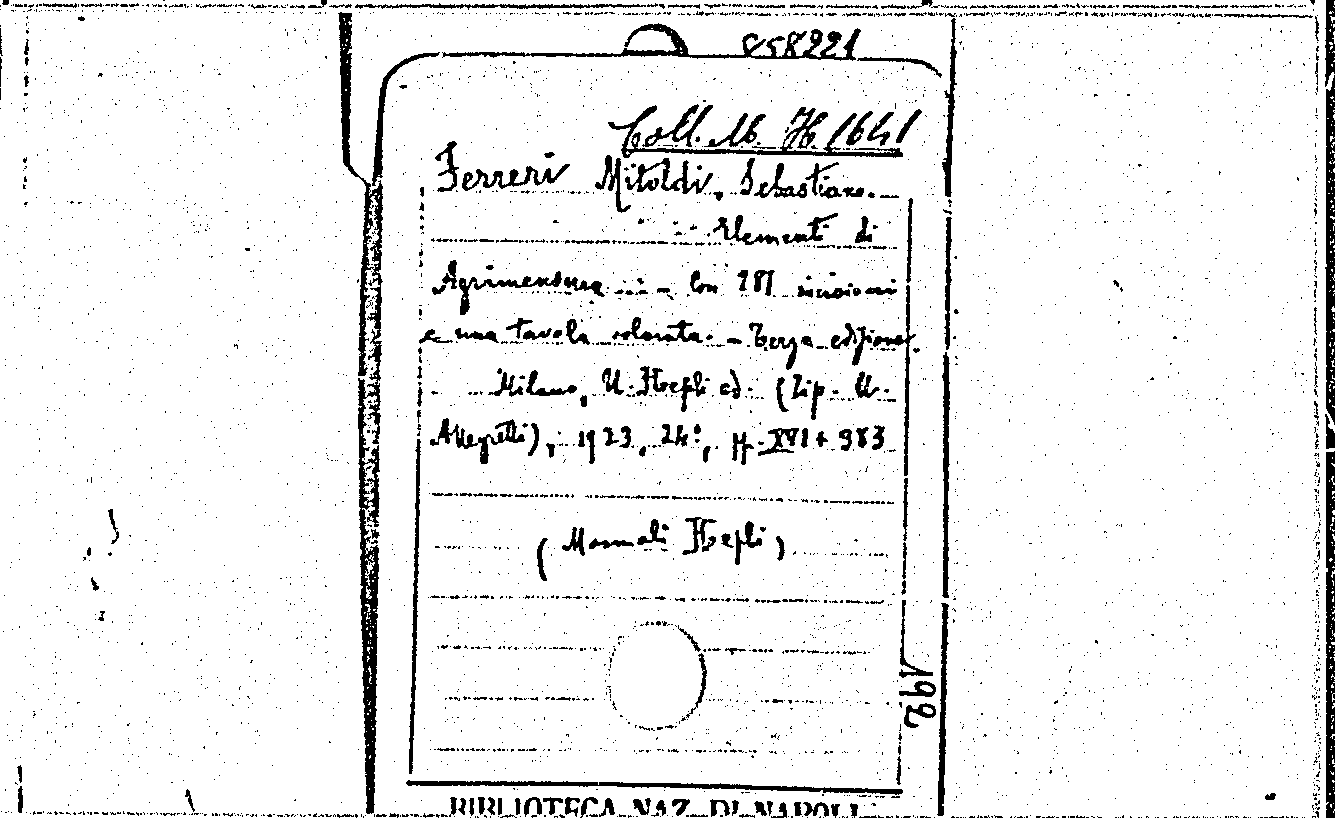 858221
Coll. Mb. H. 1641
Ferreri Mitoldi, Sebastiano.
Elementi di
Agrimensura ... - Con 281 incisioni
e una tavola colorata. - Terza edizione.
Milano, U. Hoepli ed. (Tip. U.
Allegretti), 1923, 24°, pp. XVI + 383
(Manuali Hoepli)
192
BIBLIOTECA NAZ. DI NAPOLI